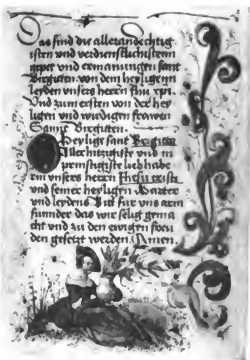 Das sind die allerandechtig
isten und verdienstlichisten
gepet und ermanungen sant
Brigitten von dem heyligenn
leyden unsers herrn Jhu xpi.
Und zum ersten von der hey
ligen und wirdigen frawen
Sancte Birgitten.
O heylige sant Brigitta
Aller hitzigiste und in
prunstigiste liebhabe
rin unsers herrn Jhesu criste
und seiner heyligen Marter
und leydens Bit fur uns arm
sunnder das wir selig gema
cht und zu den ewigen
den gesetzt werden. Amen.